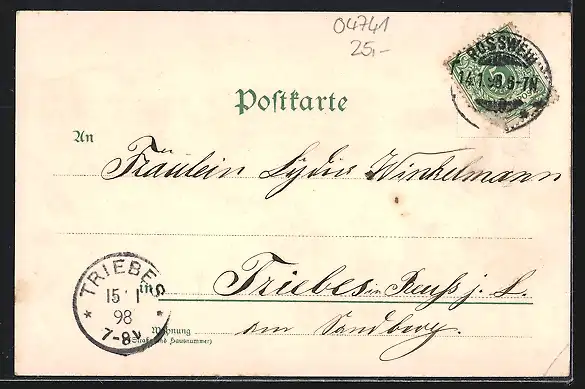 04741
25,-
ROSSWEIN
14.1.98.6-7N
Postkarte
An
Fräulein Lydia Winkelmann
TRIEBES
15 1
98
7-8V
in Triebes in Reuß j. L.
Wohnung am Sandberg.
(Straße und Hausnummer)